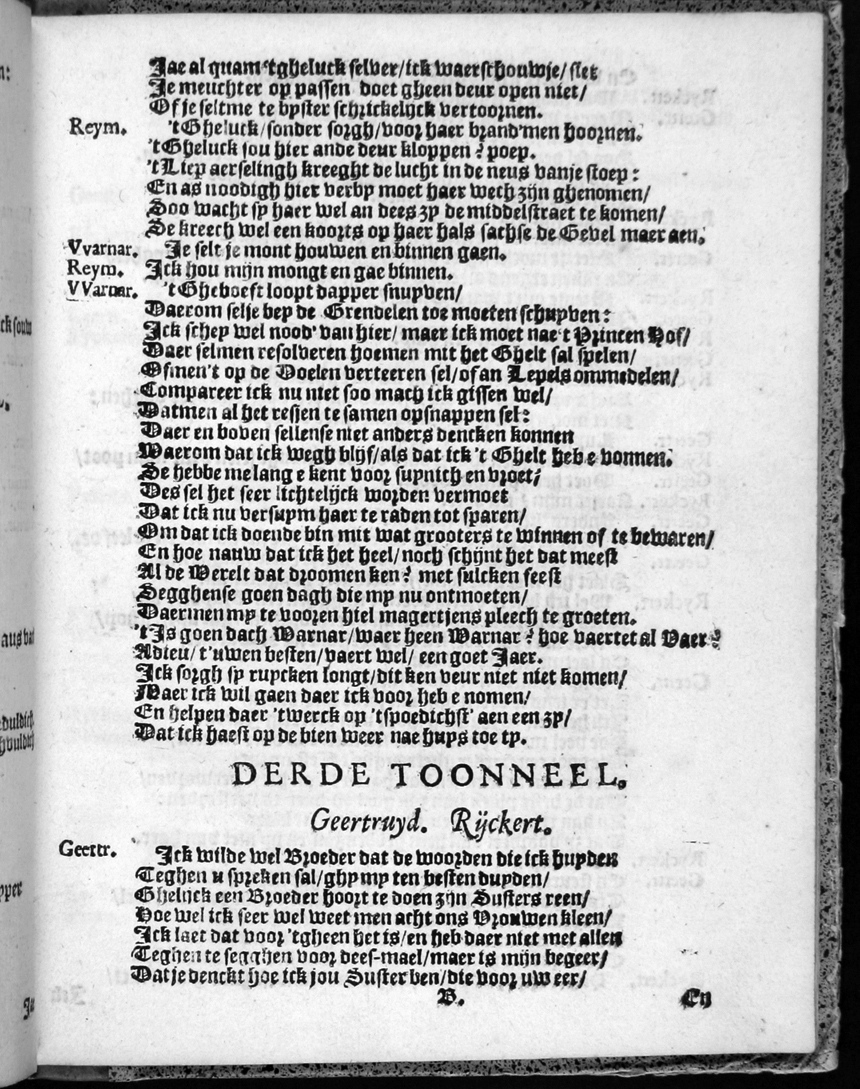 Jae al quam 'tgheluck selver/ick waerschouwje/siet
Je meuchter op passen doet gheen deur open niet/
Of je seltme te byster schrickelijck vertoornen.
Reym. 'tGheluck/sonder sorgh/voor haer brand'men hoornen.
'tGheluck sou hier ande deur kloppen? poep.
'tLiep aerselingh kreeght de lucht in de neus vanje stoep:
En as noodigh hier verby moet haer wech zijn ghenomen/
Soo wacht sy haer wel an dees zy de middelstraet te komen/
Se kreech wel een koorts op haer hals sachse de Gevel maer aen.
Vvarnar. Je selt je mont houwen en binnen gaen.
Reym. Ick hou mijn mongt en gae binnen.
VVarnar. 'tGheboeft loopt dapper snuyven/
Daerom selje bey de Grendelen toe moeten schuyven:
Ick schey wel nood' van hier/ maer ick moet nae't Princen Hof/
Daer selmen resolveren hoemen mit het Ghelt sal spelen/
Ofmen't op de Doelen verteeren sel/of an Lepels ommedelen/
Compareer ick nu niet soo mach ick gissen wel/
Datmen al het resjen te samen opsnappen sel:
Daer en boven sellense niet anders dencken konnen
Waerom dat ick wegh blijf/als dat ick 't Ghelt heb e vonnen.
Se hebbe me lang e kent voor suynich en vroet;
Des sel het seer lichtelijck worden vermoet
Dat ick nu versuym haer te raden tot sparen/
Om dat ick doende bin mit wat grooters te winnen of te bewaren/
En hoe nauw dat ick het heel/noch schijnt het dat meest
Al de Werelt dat droomen ken? met sulcken feest
Segghense goen dagh die my nu ontmoeten/
Daermen my te vooren hiel magertjens pleech te groeten.
'tIs goen dach Warnar/waer heen Warnar? hoe vaertet al Vaer?
Adieu/t'uwen besten/vaert wel/ een goet Jaer.
Ick sorgh sy ruycken longt/dit ken veur niet niet komen/
Maer ick wil gaen daer ick voor heb e nomen/
En helpen daer 'twerck op 'tspoedichst' aen een zy/
Dat ick haest op de bien weer nae huys toe ty.
DERDE TOONNEEL.
Geertruyd. Rijckert.
Geertr. Ick wilde wel Broeder dat de woorden die ick huyden
Teghen u spreken sal/ghy my ten besten duyden/
Ghelijck een Broeder hoort te doen zijn Susters reen/
Hoe wel ick seer wel weet men acht ons Vrouwen kleen/
Ick laet dat voor 'tgheen het is/en heb daer niet met allen
Teghen te segghen voor dees-mael/maer is mijn begeer/
Dat je denckt hoe ick jou Suster ben/die voor uw eer/
B. En